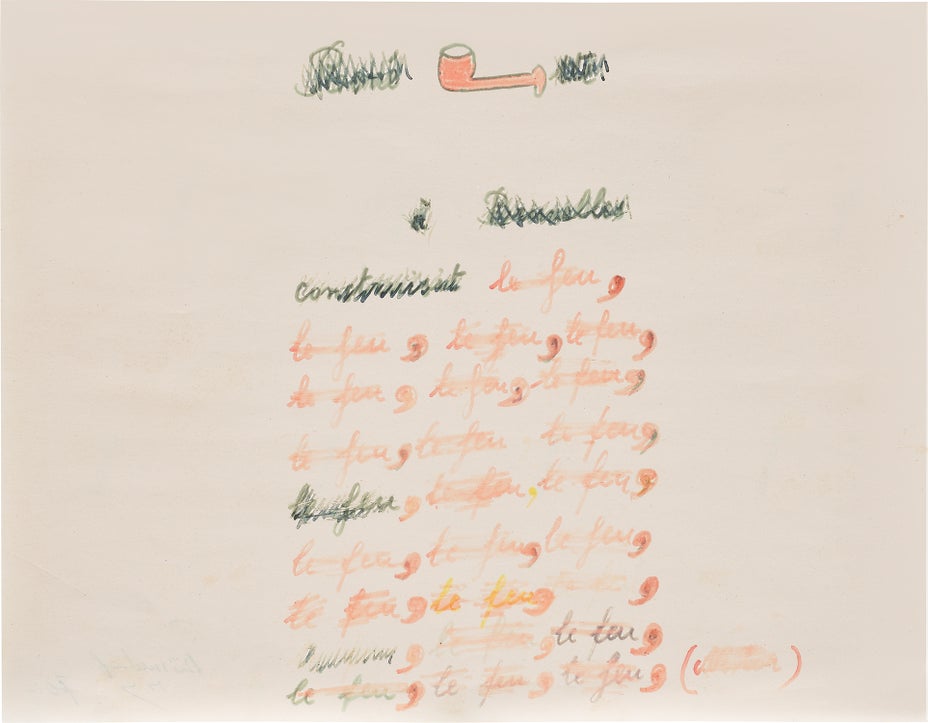 à Bruxelles
construisit le feu,
le feu, le feu, le feu,
le feu, le feu, le feu,
le feu, le feu le feu,
le feu, le feu, le feu,
le feu, le feu, le feu,
le feu, le feu, ,
, le feu, le feu,
le feu, le feu, le feu, (